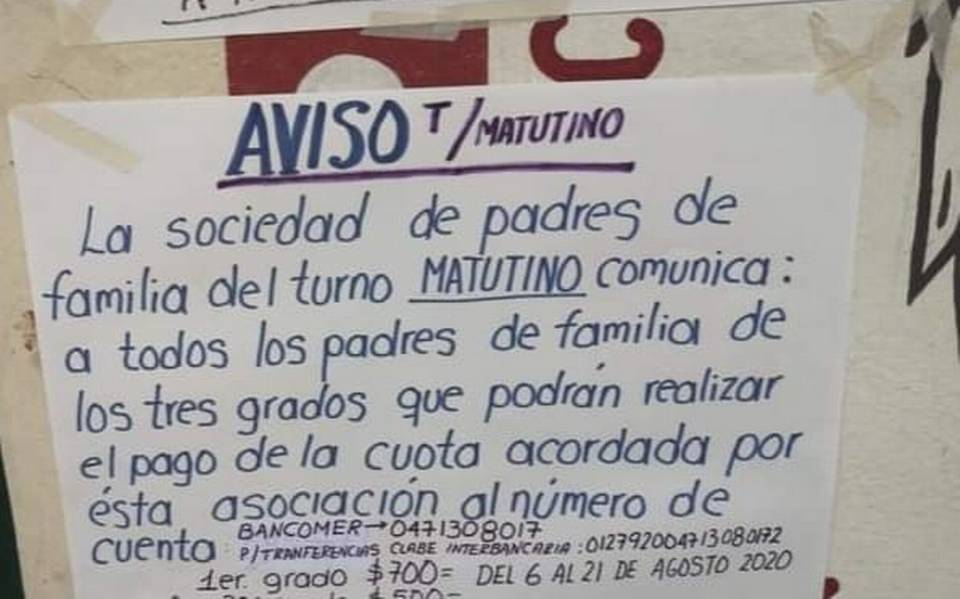 AVISO T/MATUTINO
La sociedad de padres de
familia del turno MATUTINO comunica:
a todos los padres de familia de
los tres grados que podrán realizar
el pago de la cuota acordada por
ésta asociación al número de
cuenta: BANCOMER→0471308017
P/TRANFERENCIAS CLABE INTERBANCARIA: 012792004713080172
1er. grado $700= DEL 6 AL 21 DE AGOSTO 2020